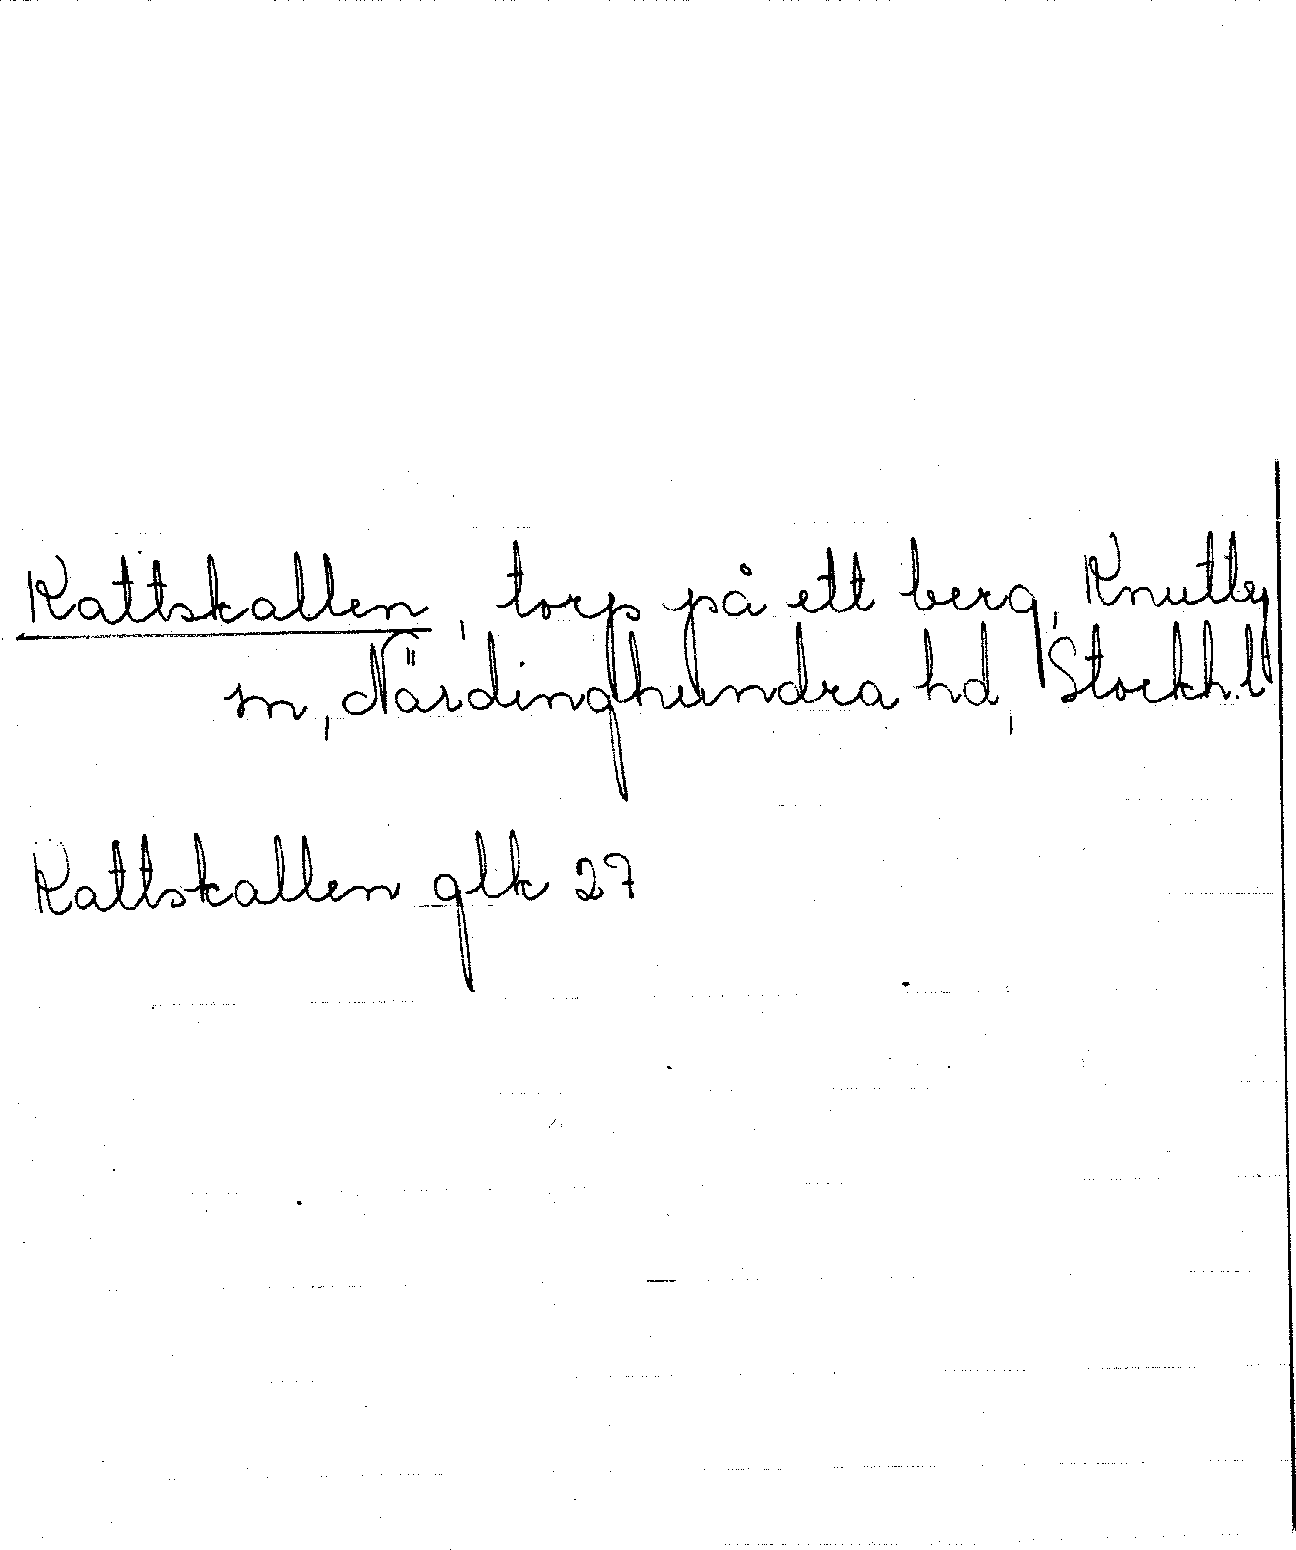 Kattskallen, torp på ett berg, Knutby
sn, Närdinghundra hd, Stockh. l
Kattskallen glk 27